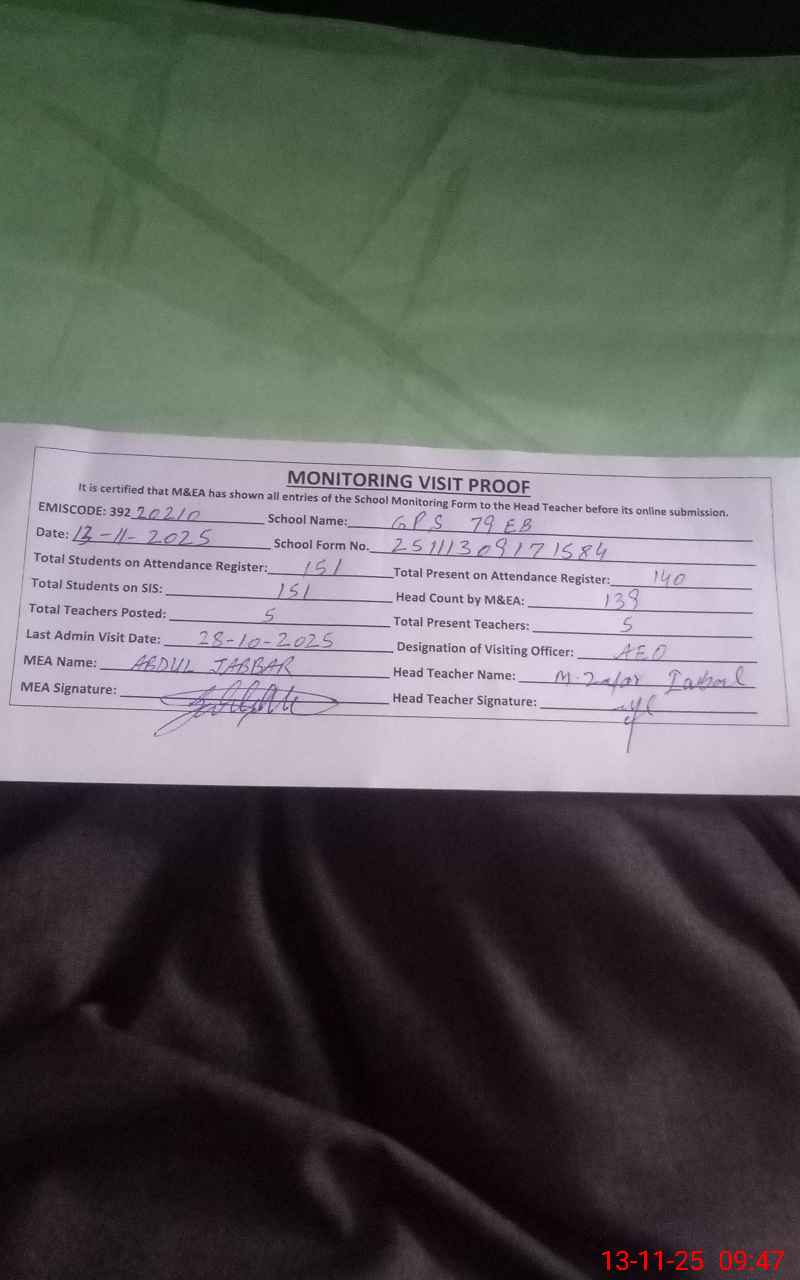 MONITORING VISIT PROOF
It is certified that M&EA has shown all entries of the School Monitoring Form to the Head Teacher before its online submission.
EMISCODE: 392 20210 School Name: GPS 79 EB
Date: 13-11-2025 School Form No. 25111309171584
Total Students on Attendance Register: 151 Total Present on Attendance Register: 140
Total Students on SIS: 151 Head Count by M&EA: 139
Total Teachers Posted: 5 Total Present Teachers: 5
Last Admin Visit Date: 28-10-2025 Designation of Visiting Officer: AEO
MEA Name: ABDUL JABBAR Head Teacher Name: M. Zafar Iqbal
MEA Signature: Head Teacher Signature:
13-11-25 09:47